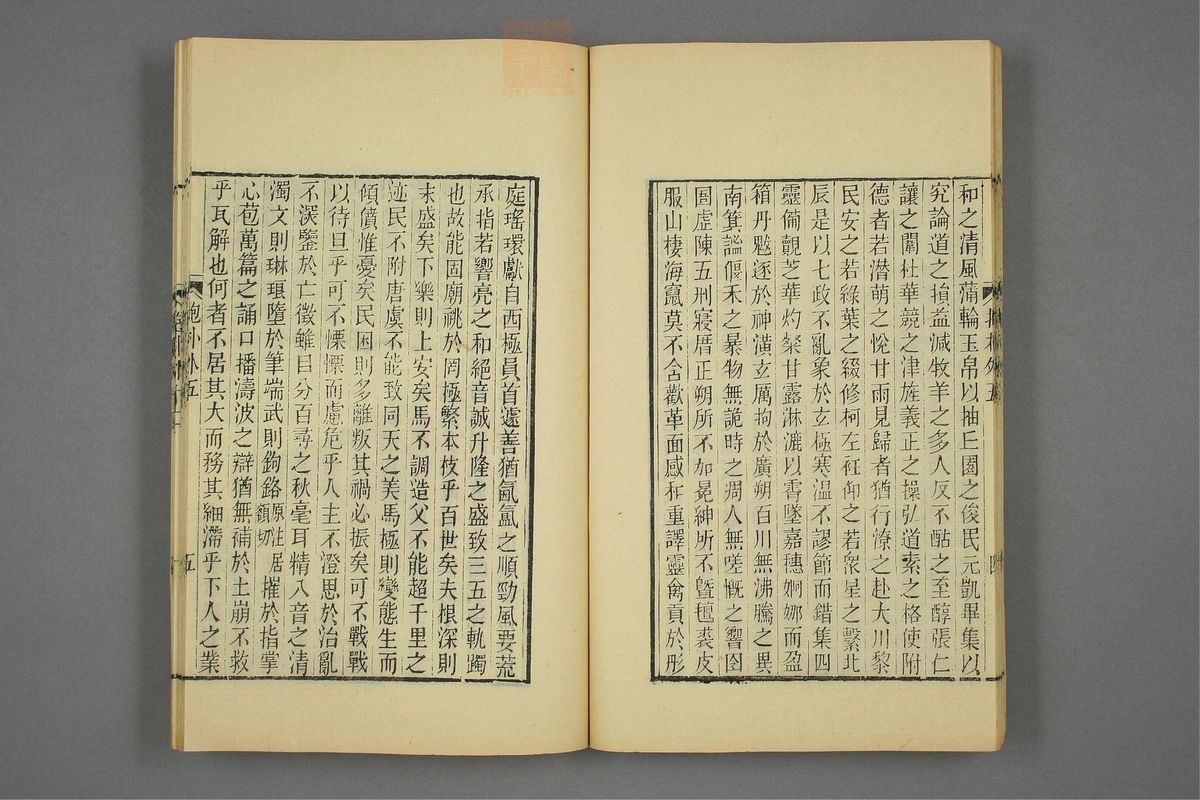 和之清風蒲輪玉帛以抽丘園之俊民元凱畢集以
究論道之損益減牧羊之多人反不酤之至醇張仁
讓之闈杜華競之津旌義正之操弘道素之格使附
德者若潛萌之悅甘雨見歸者猶行潦之赴大川黎
民安之若綠葉之綴修柯左衽仰之若衆星之繫北
辰是以七政不亂象於玄極寒温不謬節而錯集四
靈備覿芝華灼粲甘露淋漉以霄墜嘉穗婀娜而盈
箱丹魃逐於神潢玄厲拘於廣朔百川無沸騰之異
南箕謐偃禾之暴物無詭時之凋人無嗟慨之響囹
圄虛陳五刑寢厝正朔所不加冕紳所不曁氊裘皮
服山棲海竄莫不含歡革面感和重譯靈禽貢於彤
庭瑤環獻自西極員首遽善猶氤氳之順勁風要荒
承指若響亮之和絕音誠升隆之盛致三五之軌躅
也故能固廟祧於罔極繁本枝乎百世矣夫根深則
末盛矣下樂則上安矣馬不調造父不能超千里之
迹民不附唐虞不能致同天之美馬極則變態生而
傾僨惟憂矣民困則多離叛其禍必振矣可不戰戰
以待旦乎可不慄慄而慮危乎人主不澄思於治亂
不深鑒於亡徵雖目分百尋之秋毫耳精八音之清
濁文則琳琅墮於筆端武則鉤鉻原注居額切摧於指掌
心苞萬篇之誦口播濤波之辯猶無補於土崩不救
乎瓦解也何者不居其大而務其細滯乎下人之業
抱朴外五
五